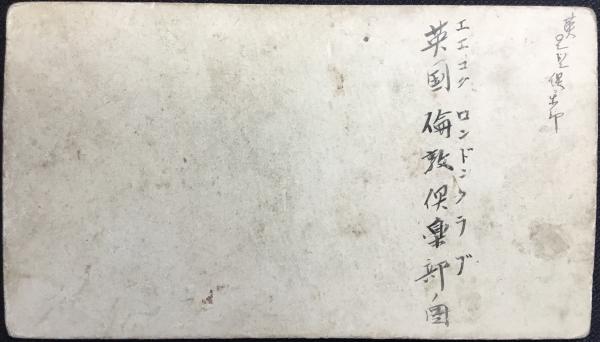 英
エエコク ロンドンクラブ
英国 倫敦倶楽部ノ図